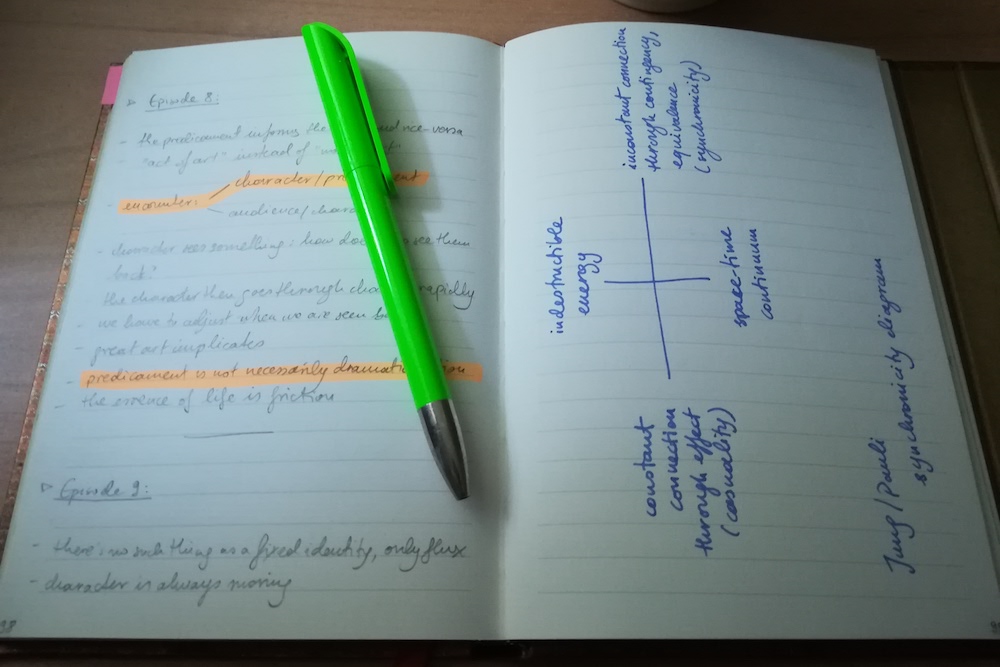 ▷ Episode 8:
- the predicament informs the vice-versa
- "act of art" instead of
- encounter: character/
audience/
- character sees something: how see them
back?
the character then goes through rapidly
- we have to adjust when we are seen
- great art implicates
- predicament is not necessarily
- the essence of life is friction
▷ Episode 9:
- there's no such thing as a fixed identity, only flux
- character is always moving
38
indestructible
energy
inconstant connection
through contingency,
equivalence
(synchronicity)
constant
connection
through effect
(casuality)
space-time
continuum
Jung/Pauli
synchronicity diagram